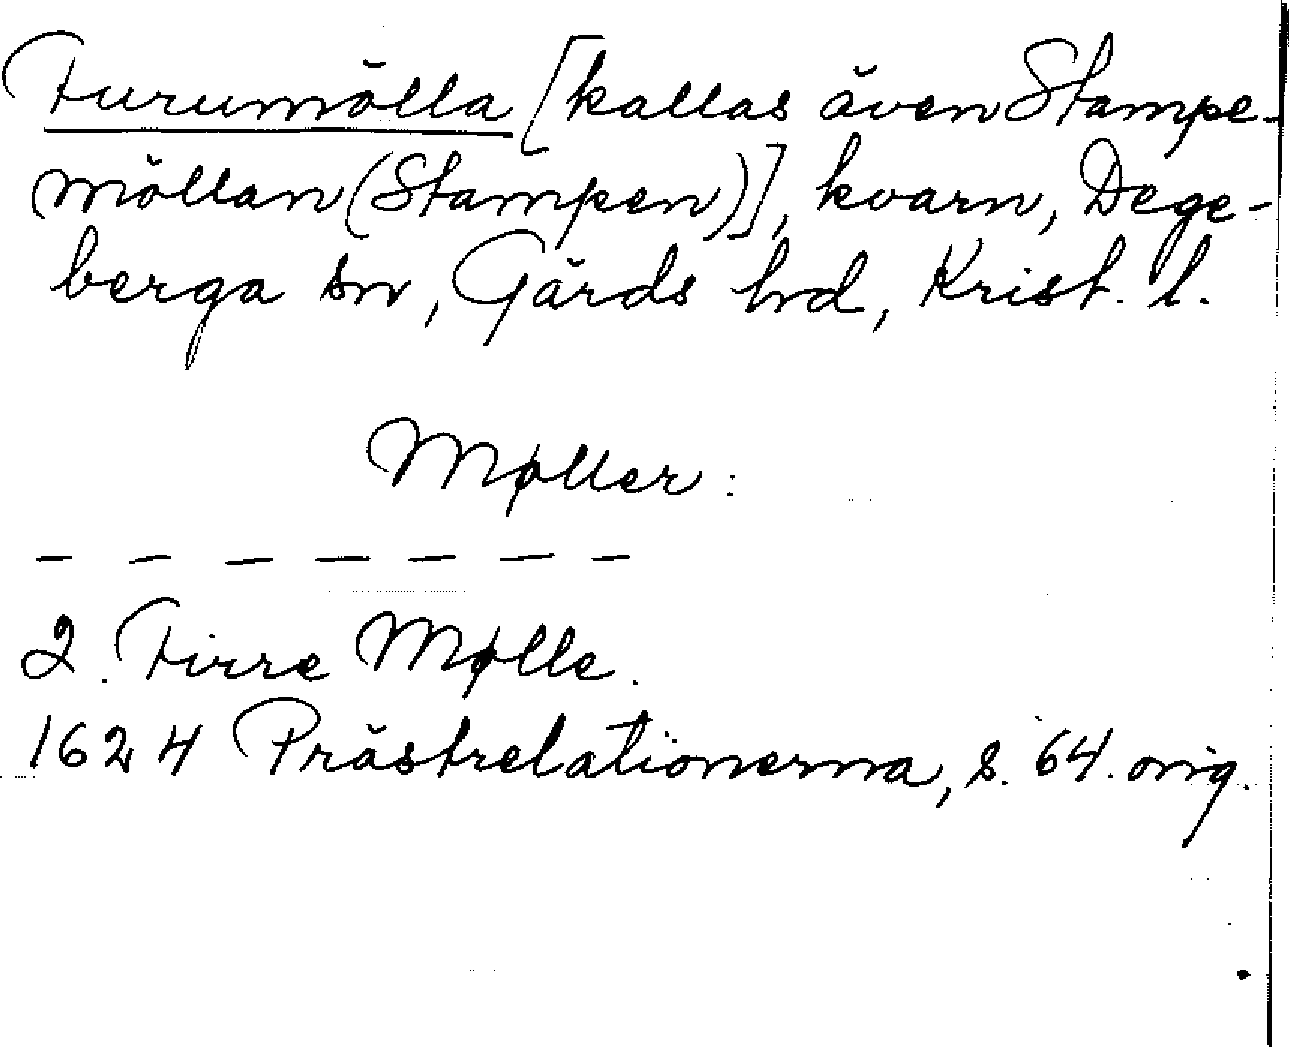 Furumölla [kallas även Stampe-
möllan (Stampen)], kvarn, Dege-
berga sn, Gärds hd, Krist. l.
Møller:
— — — — — — —
2. Firre Mølle.
1624 Prästrelationerna, s. 64. orig.